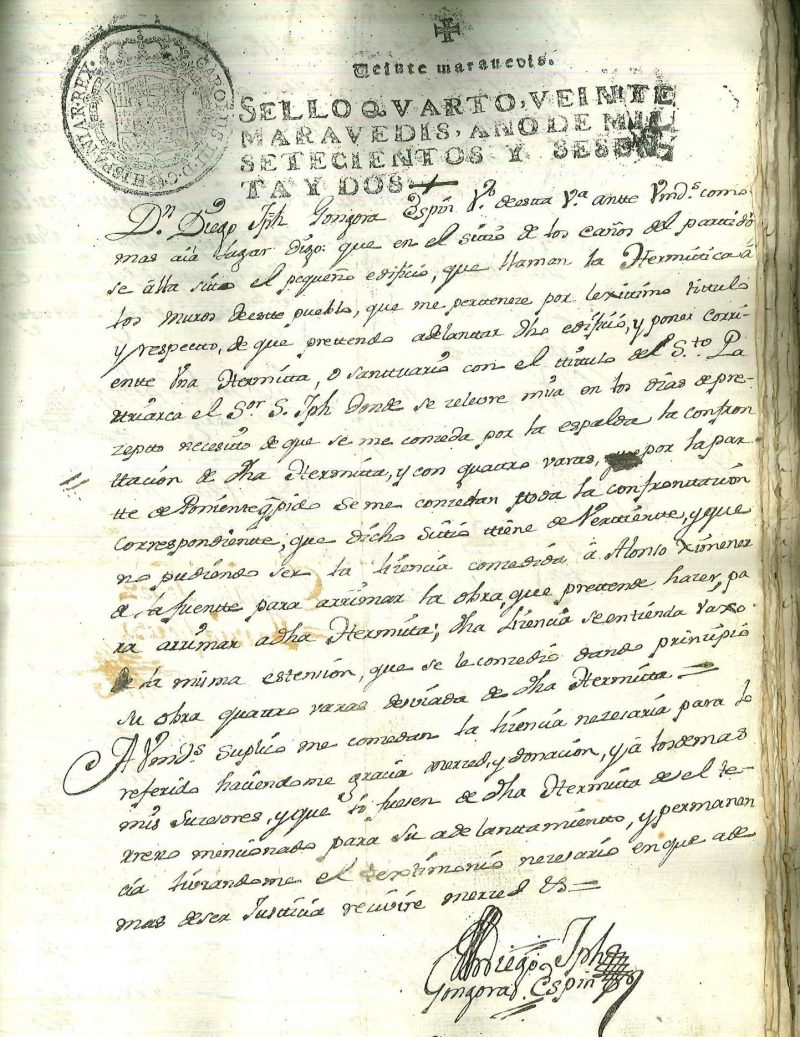 CAROLUS III D G HISPANIAR REX
Veinte maravedis.
SELLO QVARTO, VEINTE
MARAVEDIS, AÑO DE MIL
SETECIENTOS Y SESEN
TA Y DOS
Dn Diego Jph Gongora Espin Vº desta Vª antte Vmds como
mas aia lugar Digo: que en el sitio de los caños del partido
se alla sito el pequeño edificio, que llaman la Hermitica á
los muros de este pueblo, que me pertenece por lexitimo titulo
y respecto, de que prettendo adelantar dho edificio, y poner corri-
entte Vna Hermitta, o santtuario con el titulo del Sto Pa
triarca el Sor S. Jph donde se zelevre misa en los dias de pre-
cepto necesito de que se me conzeda por la espalda la confron
ttación de dha Hermitta, y con quattro varas, por la par
tte de Poniente q pido se me conzedan toda la confronttación
correspondiente, que dicho sitio ttiene de Verttiente, y que
no pudiendo ser la lizencia conzedida á Alonso Ximenez
de la fuente para arrimar la obra, que prettende hazer, pa
ra arrimar a dha Hermita; dha lizencia se entienda vaxo
de la misma estensión, que se le conzedió dando principio
su obra quattro varas desviada de dha Hermitta
A Vmds suplico me conzedan la lizencia nezesaria para lo
referido haciendome gracia merzed, y donación, y á los demas
mis suzesores, y que lo fuesen de dha Hermita de el te-
rreno mencionado para su adelanttamiento, y permanen
cia livrandome el testimonio nezesario en que ade
mas de ser Justicia recivire merzed &
Dn Diego Jph
Gongora Espin